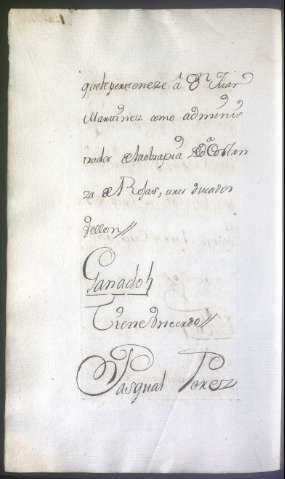 que le pertoneze â Dn Juan
Martinez como adminis
trador de la obrapia de Dª Costan
za de Rosas, unos ducados
dellon//
Ganado
Tiene un cerdo//
Pasqual Perez